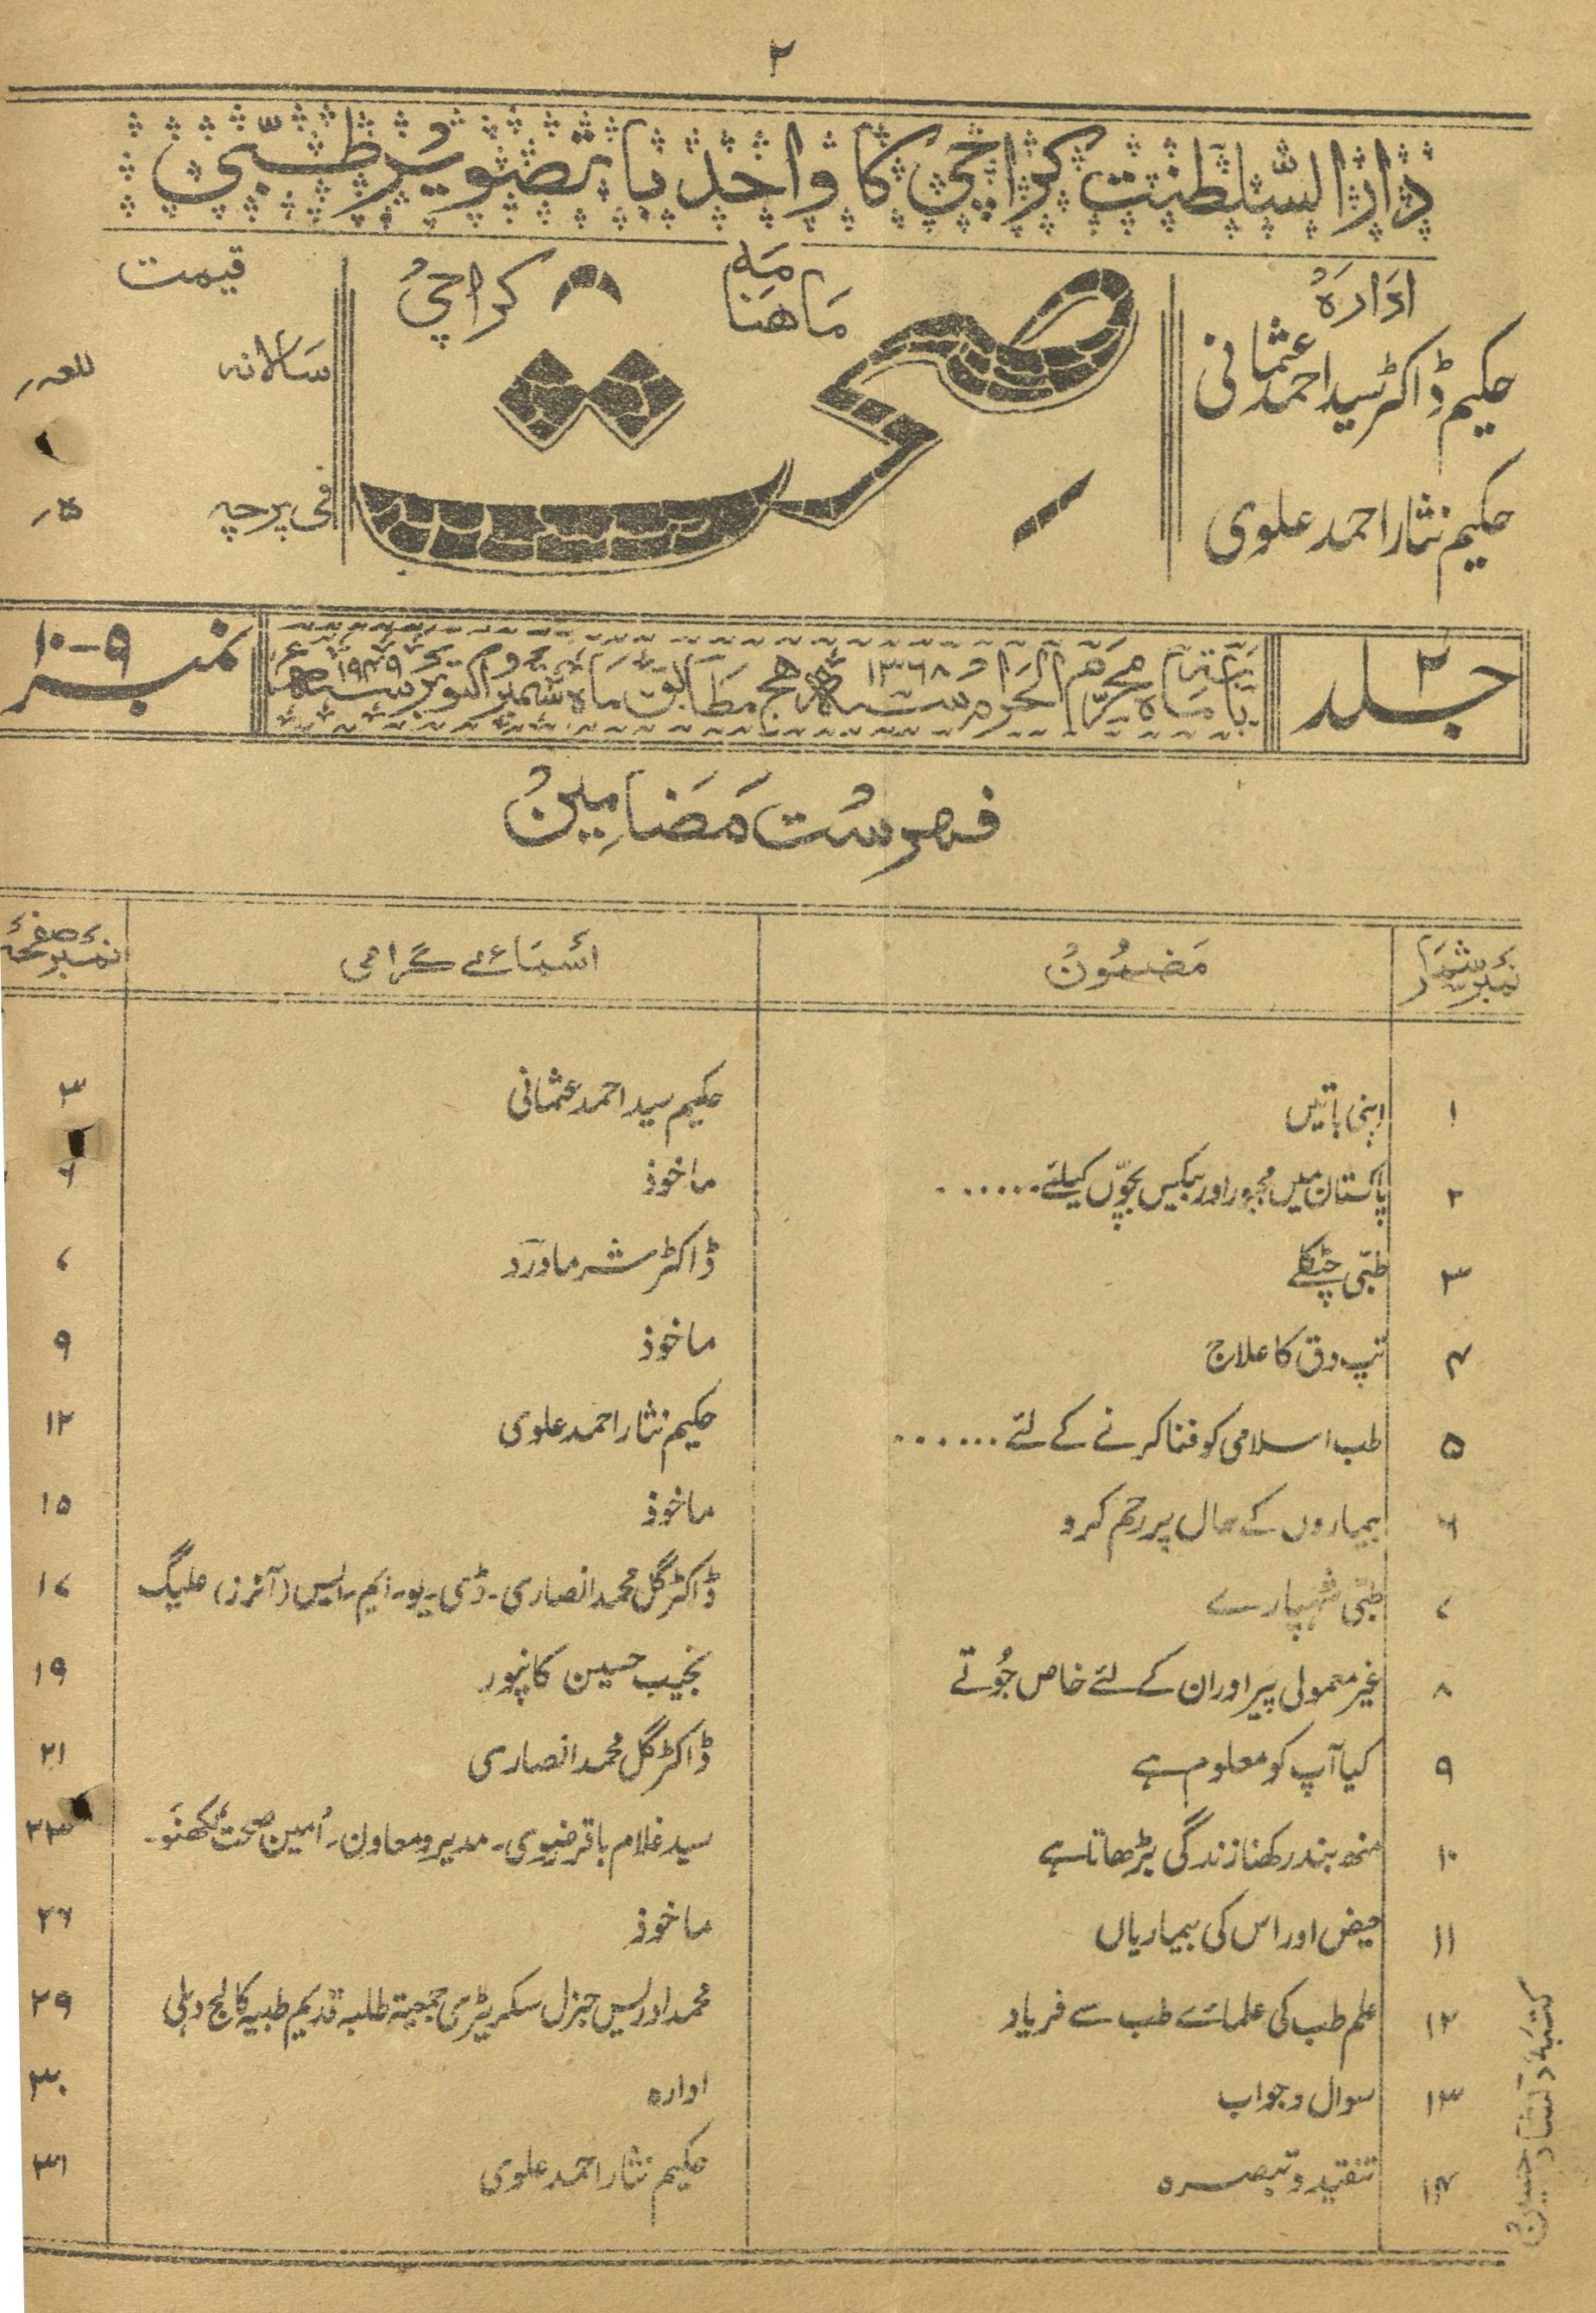 ۲
دارالسلطنت کراچی کا واحد باتصویر طبّی
ادارہ
حکیم ڈاکٹر سید احمد عثمانی
حکیم نثار احمد علوی
ماهنامہ
صحت
کراچی
قیمت
سالانہ للعہ ر
فی پرچہ ۵ر
جلد ۲
بابتہ ماہ محرم الحرام ۱۳۶۸ھج مطابق ماہ ستمبر و اکتوبر ۱۹۴۹ء
نمبر ۹-۱۰
فہرست مضامین
نمبر شمار مضمون اسمائے گرامی نمبر صفحہ
۱ اپنی باتیں حکیم سید احمد عثمانی ۳
۲ پاکستان میں مجبور اور بیکس بچوّں کیلئے...... ماخوذ ۶
۳ طبّی چٹکلے ڈاکٹر شرما ورَد ۷
۴ تپ دق کا علاج ماخوذ ۹
۵ طب اسلامی کو فنا کرنے کے لئے...... حکیم نثار احمد علوی ۱۲
۶ بیماروں کے حال پر رحم کرو ماخوذ ۱۵
۷ طبّی شہپارے ڈاکٹر گل محمد انصاری۔ڈی۔یو۔ایم۔ایس (آنرز) علیگ ۱۷
۸ غیر معمولی پیر اور ان کے لئے خاص جُوتے نجیب حسین کانپور ۱۹
۹ کیا آپ کو معلوم ہے ڈاکٹر گل محمد انصاری ۲۱
۱۰ منھ بند رکھنا زندگی بڑھاتا ہے سید غلام باقر رضوی۔مدیر و معاون۔اُمین صحت لکھنؤ۔ ۲۳
۱۱ حیض اور اس کی بیماریاں ماخوذ ۲۶
۱۲ علم طب کی علمائے طب سے فریاد محمد ادریس جنرل سکریٹری جمعیۃ طلبہ قدیم طبیہ کالج دہلی ۲۹
۱۳ سوال و جواب ادارہ ۳۰
۱۴ تنقید و تبصرہ حکیم نثار احمد علوی ۳۱
کتبہٗ دلشاد حسین